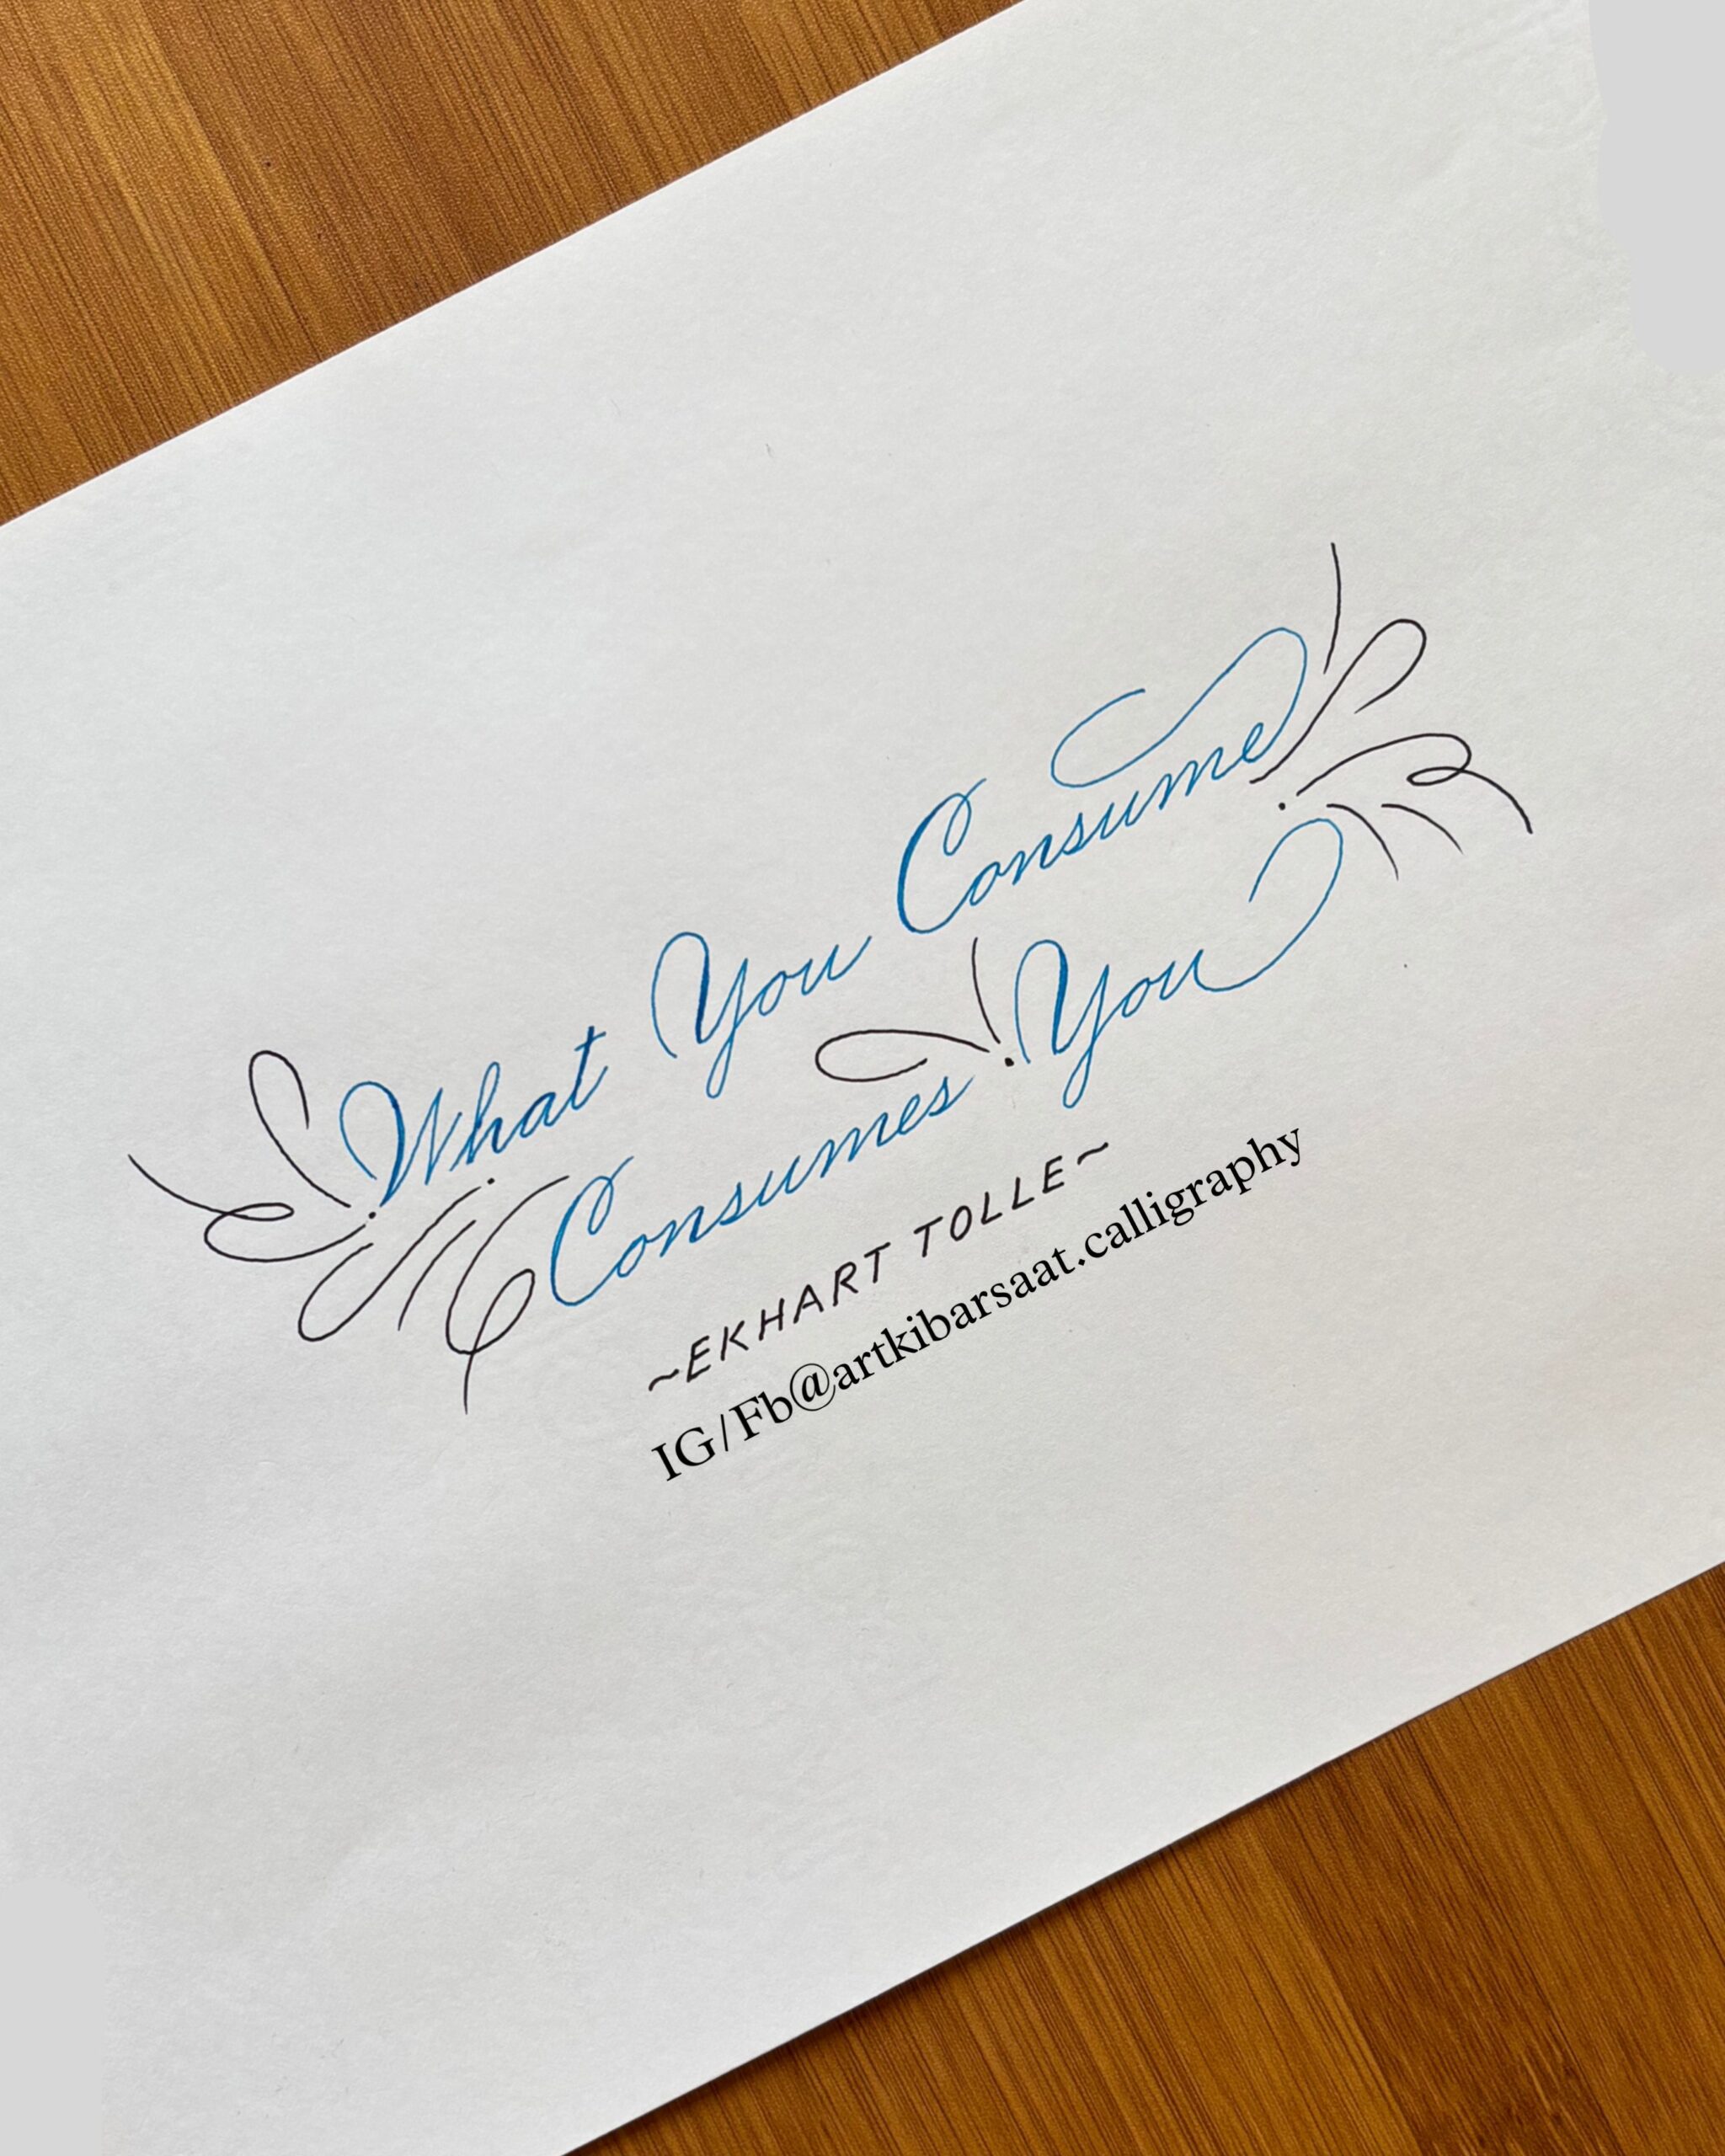 What You Consume
Consumes You
~EKHART TOLLE~
IG/Fb@artkibarsaat.calligraphy